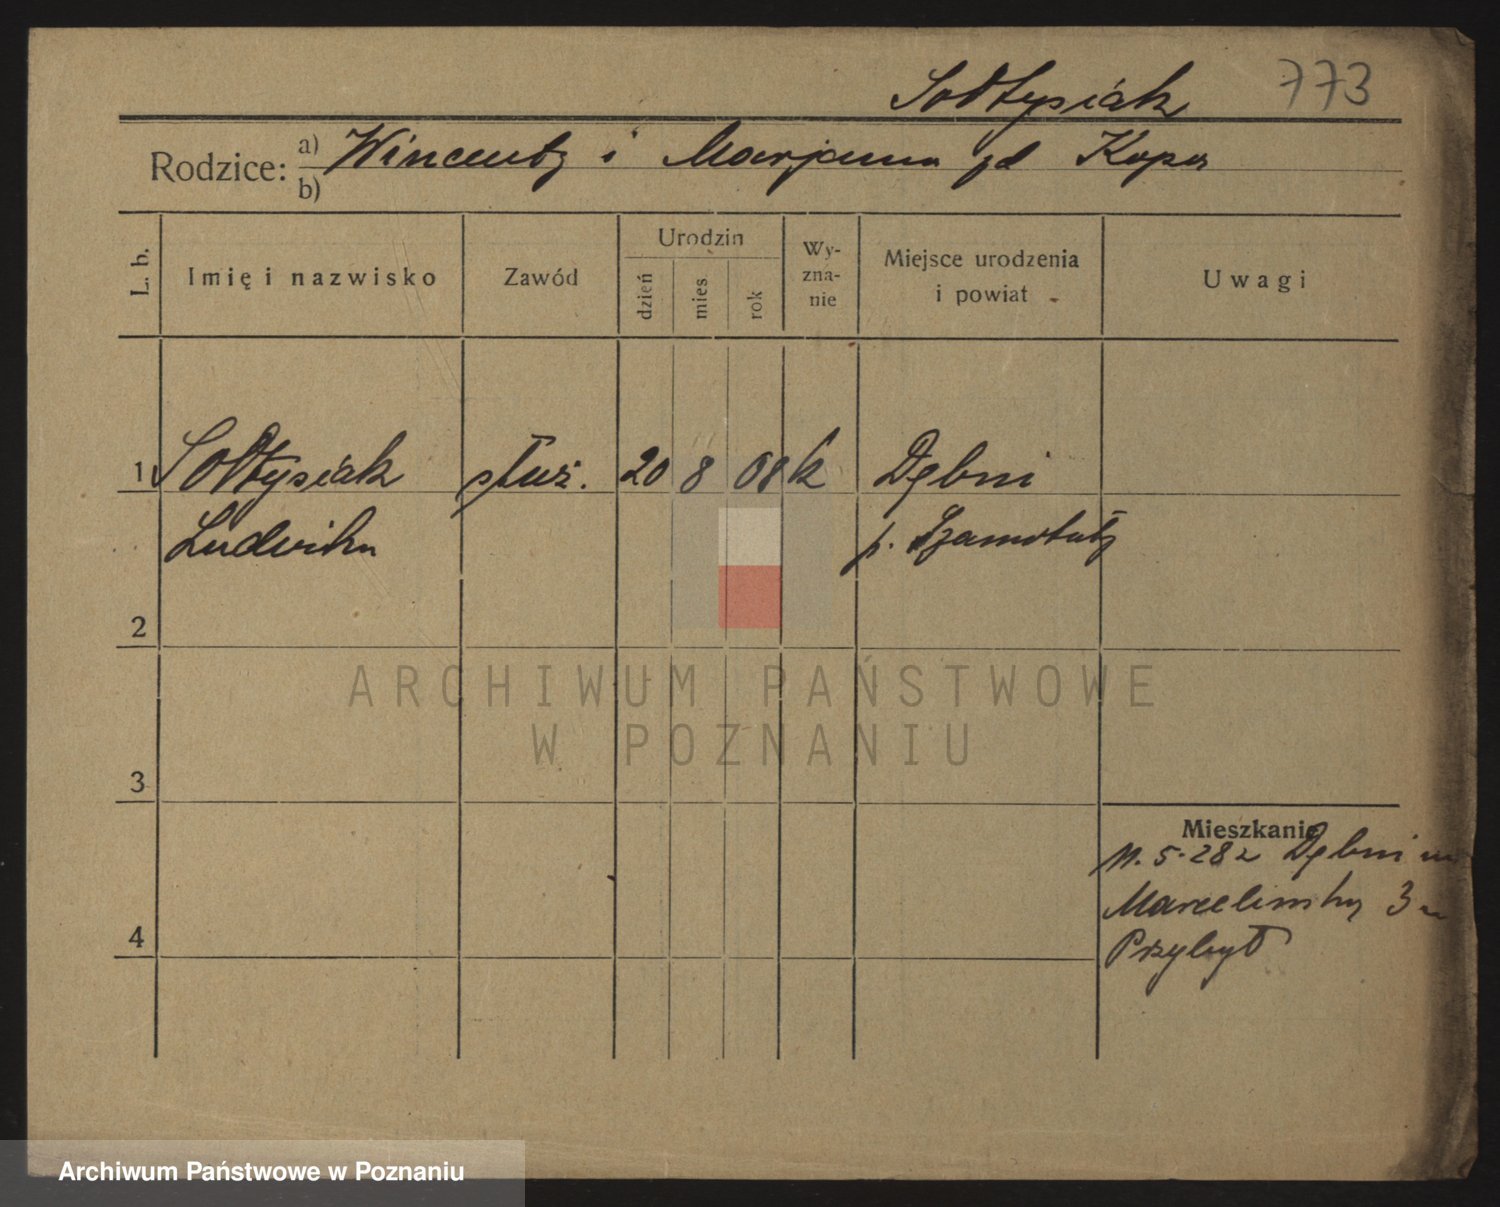 Sołtysiak 773
Rodzice: a) Wincenty i Marjanna zd Kopa
b)
L. b. Imię i nazwisko Zawód Urodzin dzień mies rok Wyznanie Miejsce urodzenia i powiat Uwagi
1 Sołtysiak służ. 20 8 08 k Dębni
Ludwika p. Szamotuły
2
3
4
Mieszkanie
11.5.28 z Dębni
Marcelińska 3
Przybył
ARCHIWUM PAŃSTWOWE
W POZNANIU
Archiwum Państwowe w Poznaniu